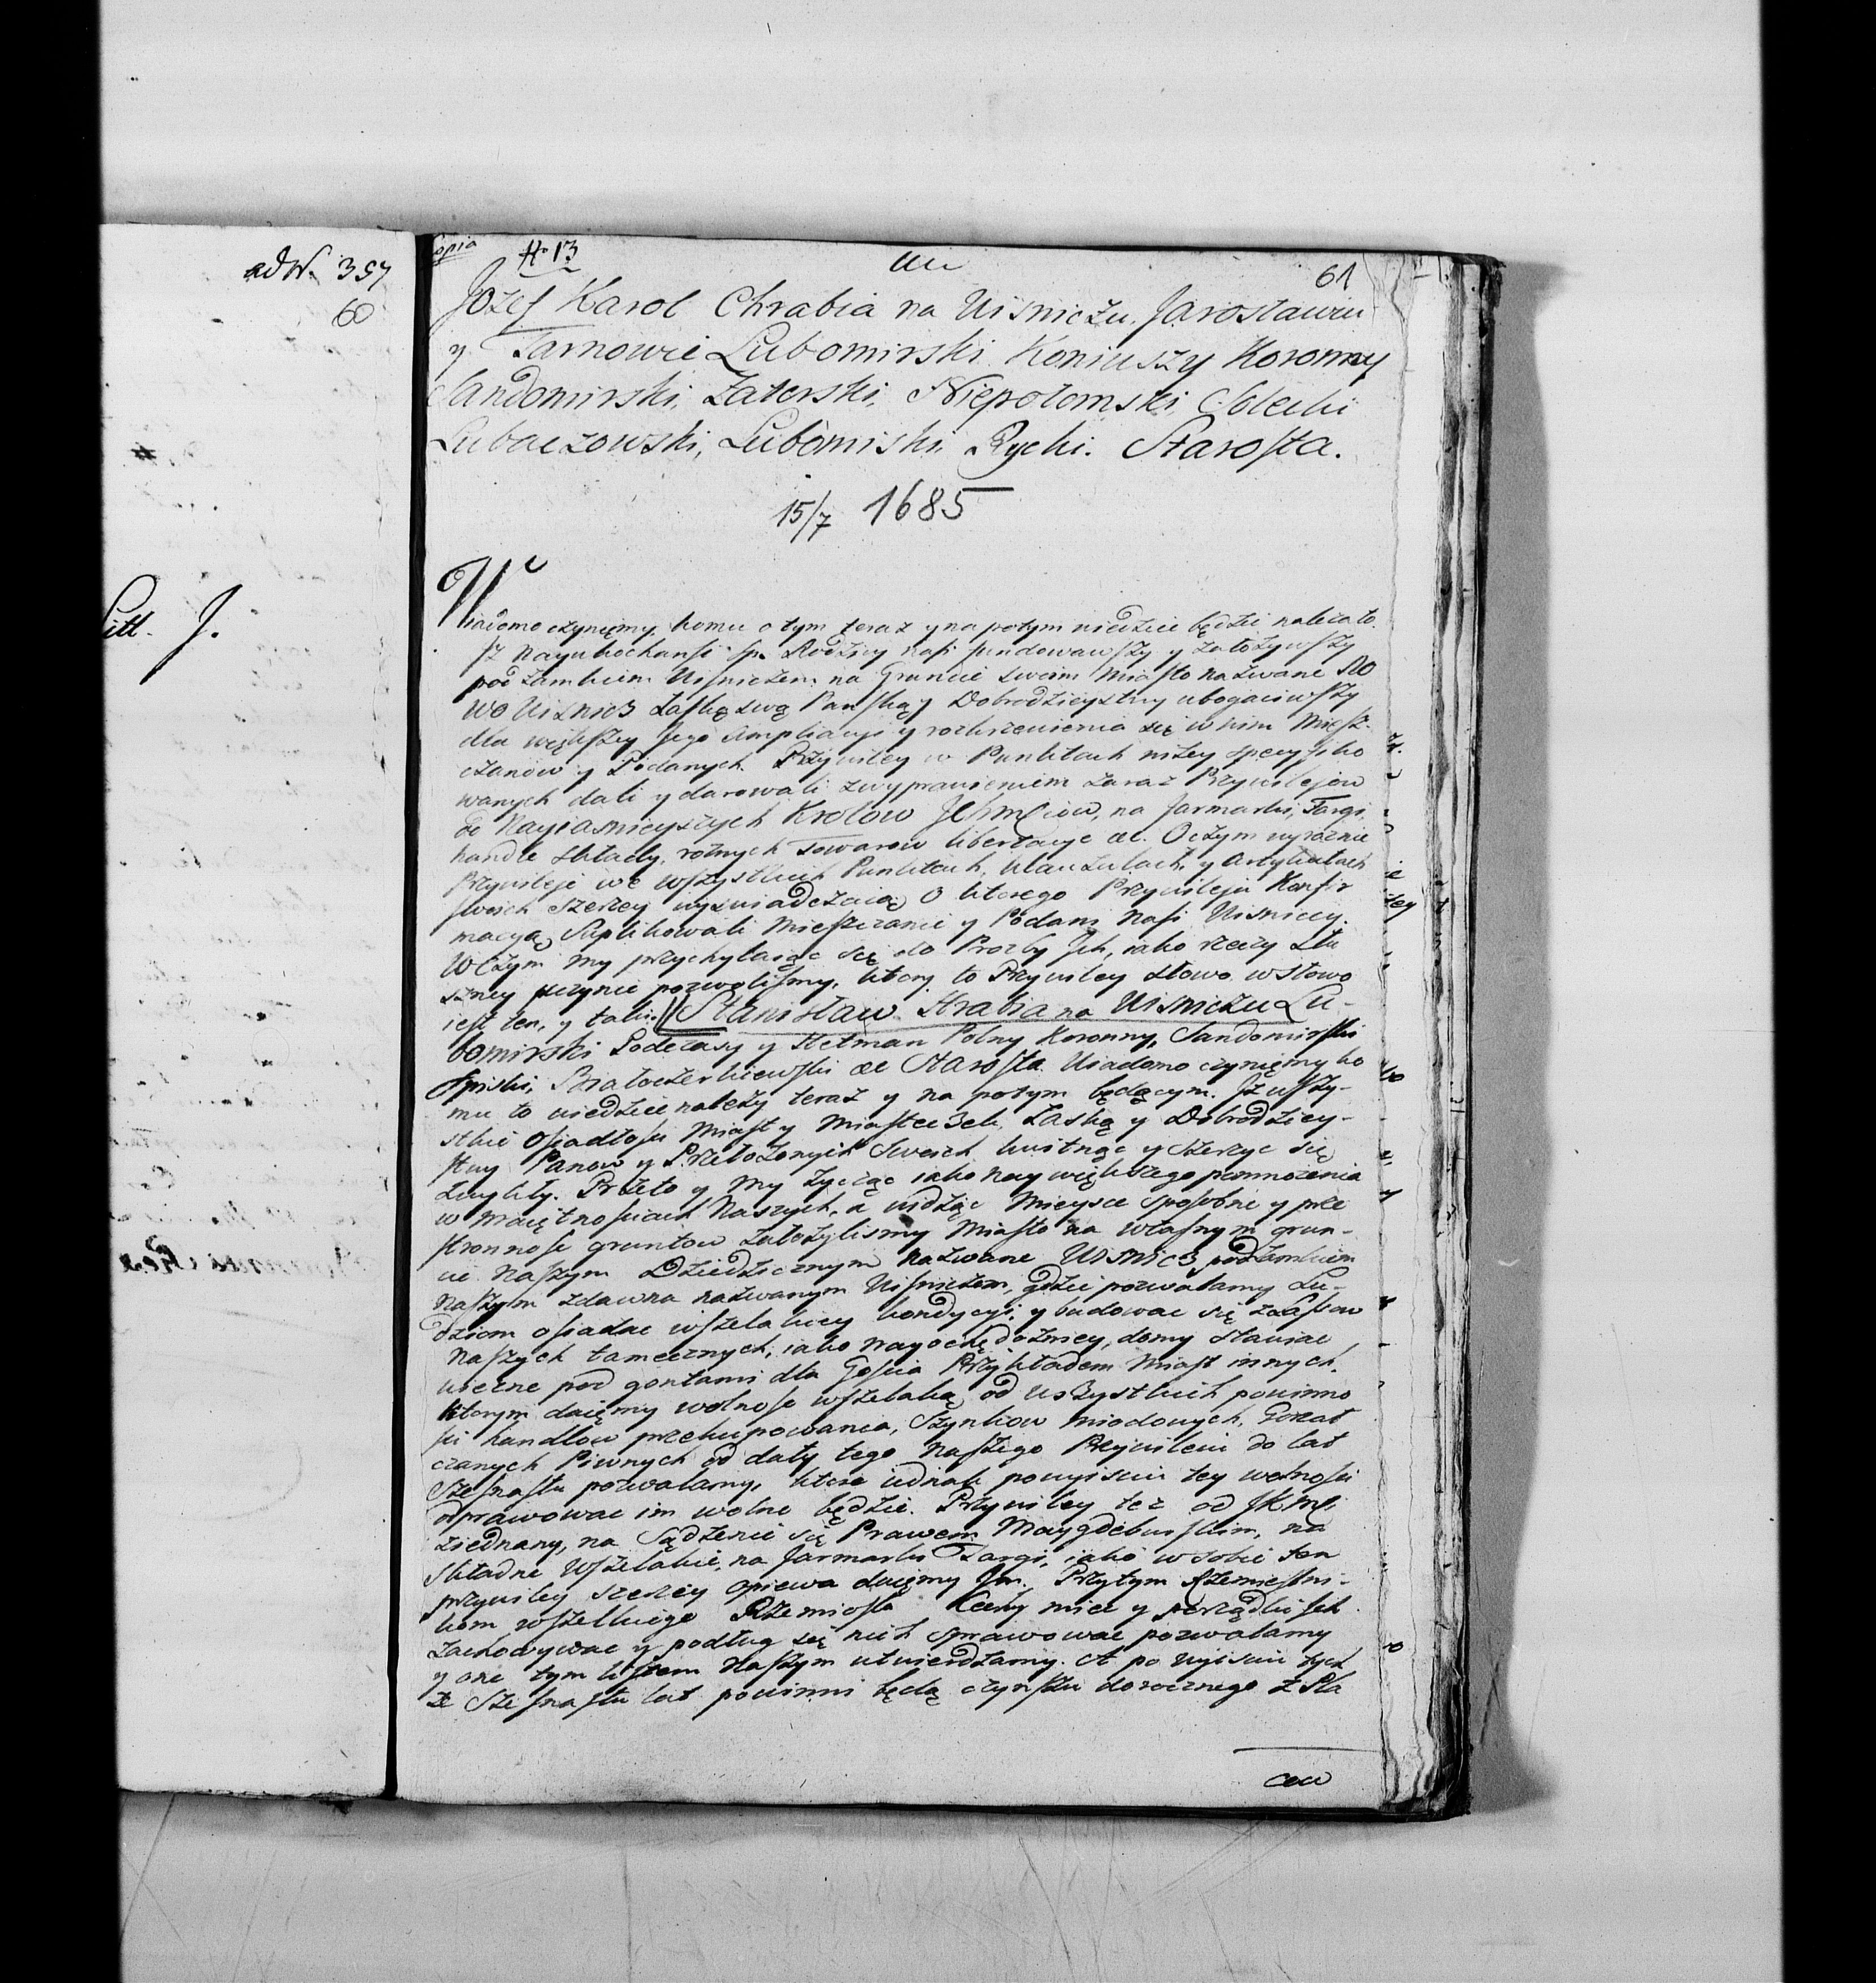 ad N. 357
60
Litt. J.
Copia
N 13
61
Jozef Karol Chrabia na Wisniczu, Jaroslawiu
y Tarnowie Lubomirski Koniuszy Koronny
Sandomirski, Zatorski, Niepolomski,
Lubaczowski, Lubomiski, Rycki. Starosta.
15/7 1685
Wiadomo czyniemy komu o tym teraz y na potym wiedziec będzie nalezało.
Jż Nayukochansi sp. Rodzicy nasi fundowawszy y założywszy
pod zamkiem Wisniczem na Gruncie swoim Miasto nazwane No
wo Wisnicz Łaską swą Panską y Dobrodzieystwy ubogaciwszy
dla większey Jego Ampliacyi y rozkrzewienia się w nim Miesz-
czanow y Podanych. Przywiley w Punktach niżey specyfiko
wanych dali y darowali z wyprawieniem zaraz Przywilejow
od Nayiasnieyszych Krolow Jchmciow, na Jarmarki, Targi,
handle składy, rożnych Towarow libertacye etc. O czym wyraznie
Przywileje we wszystkich Punktach, Klauzulach, y Artykułach
swoich szerzey wyswiadczaią O ktorego Przywileju Konfir
macyą Suplikowali Mieszczanie y Podani Nasi Wisniccy.
W czym my przychylaiąc się do Prozby Jch, iako rzeczy słu
szney pozwolismy, ktory to Przywiley słowo w słowo
iest ten, y taki. Stanisław Hrabia na Wisniczu Lu-
bomirski Podczaszy y Hetman Polny Koronny, Sandomirski
Spiski, Białocerkiewski etc Starosta Wiadomo czyniemy ko
mu to wiedziec należy teraz y na potym będącym. Jż wszy-
stkie Osiadłosci Miast y Miasteczek Łaską y Dobrodziey-
stwy Panow y Przełożonych Swoich kwitnąc y szerzyc się
zwykły. Przeto y my życząc iako naywiększego pomnożenia
w Maiętnosciach Naszych, a widząc mieysce sposobne y prze
stronnosc gruntow założylismy Miasto na własnym grun-
cie Naszym Dziedzicznym nazwane Wisnicz pod Zamkiem
Naszym zdawna nazwanym Wisniczem, gdzie pozwalamy Lu-
dziom osiadac wszelakiey kondycyi, y budowac się z Lasow
Naszych tamecznych, iako nayochędożniey, domy stawiac
wieczne pod gontami dla Goscia Przykładem Miast innych.
Ktorym daięmy wolnosc wszelaką od wszystkich powinno
sci handlow przekupowania, Szynkow miodowych, Gorzał
czanych Piwnych od daty tego Naszego Przywileiu do lat
Szesnastu pozwalamy, ktore iednak po wyisciu tey wolnosci
odprawowac im wolno będzie. Przywiley też od JKMci
ziednany, na Sądzenie się Prawem Maygdeburskim, na
składne Wszelakie, na Jarmarki Targi, iako w sobie ten
przywiley szerzey opiewa daięmy Jm. Przytym Rzemieslni-
kom wszelkiego Rzemiosła Cechy miec y porządki Jch
zachowywac y podług się nich sprawowac pozwalamy
y one tym Listem Naszym utwierdzamy. A po wyisciu tych
że Szesnastu lat powinni będą czynszu dorocznego z Pla
cow